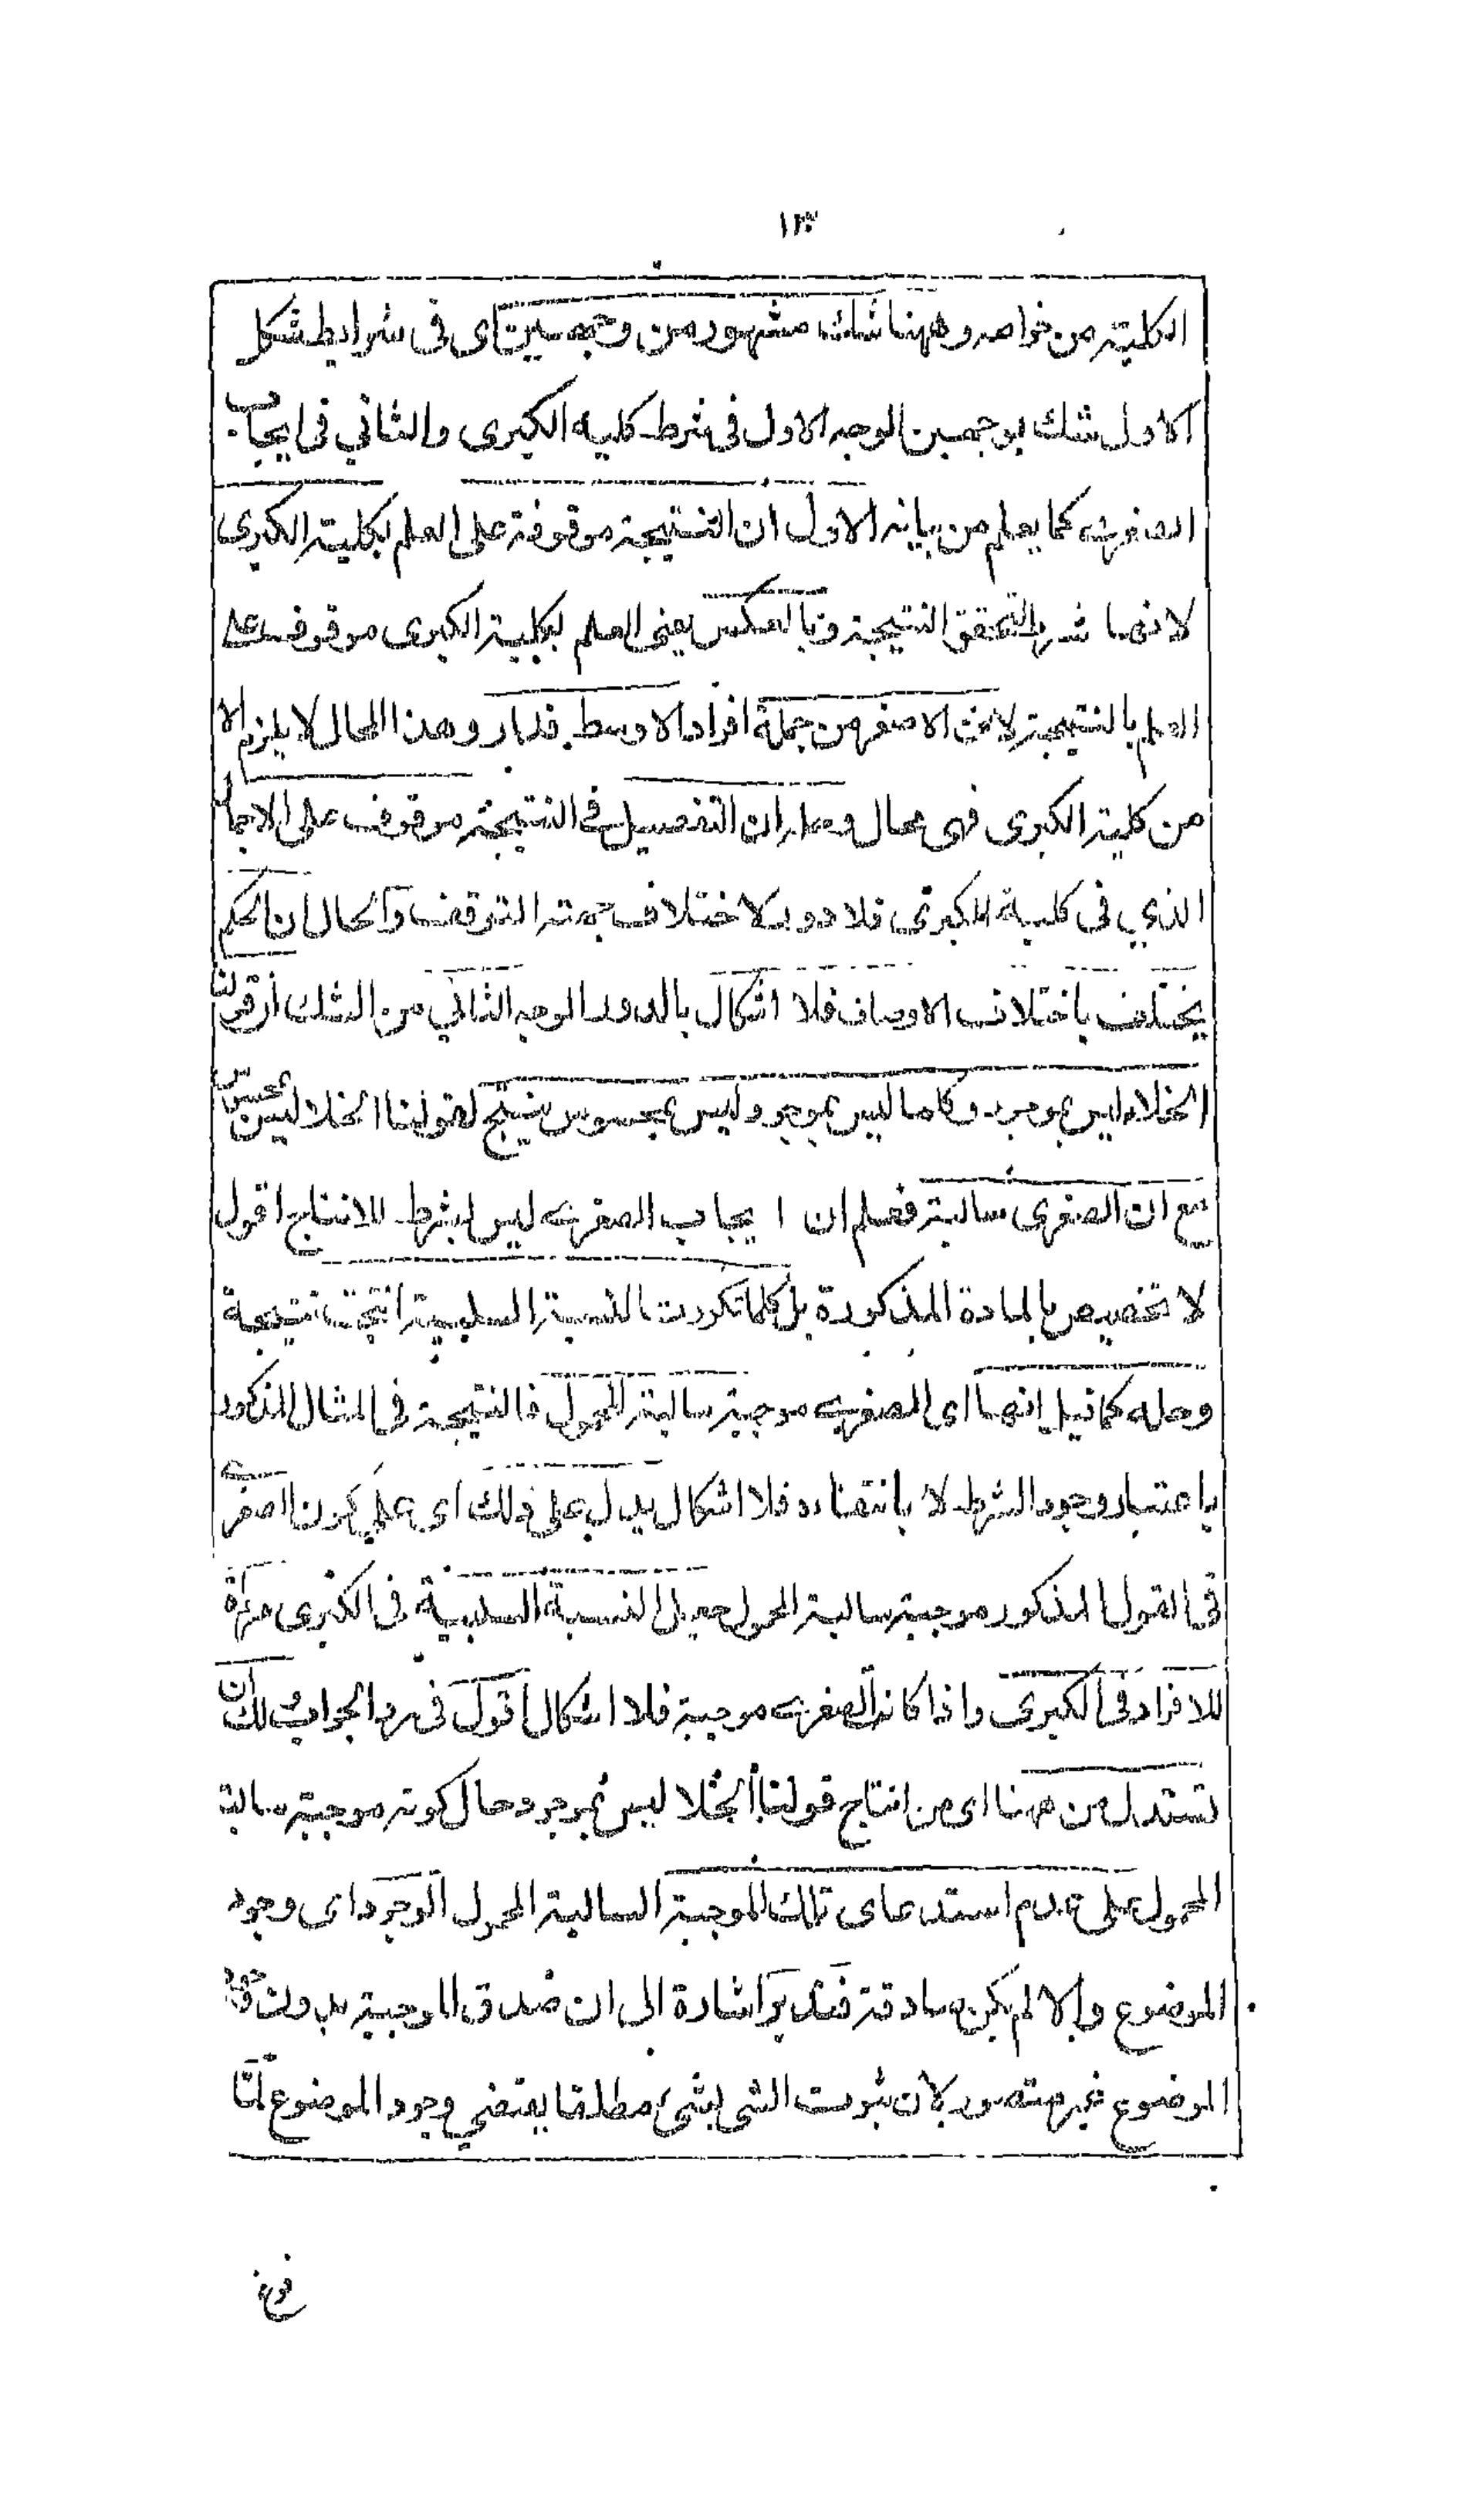 ١٢٣
الكلية من خواصه وههنا شك مشهور من وجهين اى فى شرايط شكل
الاول شك بوجهين الوجه الاول فى شرط كليه الكبرى والثاني فى ايجاب
الصغرى كما يعلم من بيانه الاول ان النتيجة موقوفة على العلم بكلية الكبرى
لانها شرط لتحقق النتيجة وبالعكس يعنى العلم بكلية الكبرى موقوف على
العلم بالنتيجة لان الاصغر من جملة افراد الاوسط فدار وهذا المحال لا يلزم الا
من كلية الكبرى فهى محال وحله ان التفصيل فى النتيجة موقوف على الاجمال
الذي فى كلية الكبرى فلا دور لاختلاف جهته التوقف والحال ان الحكم
يختلف باختلاف الاوصاف فلا اشكال بالدور الوجه الثاني من الشك ان قولنا
الخلاء ليس بموجود وكلما ليس بموجود وليس بمحسوس ينتج لقولنا الخلا ليس بمحسوس
مع ان الصغرى سالبة فعلم ان ايجاب الصغرى ليس بشرط للانتاج اقول
لا تخصيص بالمادة المذكورة بل كلما تكررت النسبة السلبية انتجت نتيجة
وحله كما قيل انها اى الصغرى موجبة سالبة المحمول فالنتيجة فى المثال المذكور
باعتبار وجود الشرط لا بانتفاءه فلا اشكال يدل على ذلك اى على كون الصغرى
فى القول المذكور موجبة سالبة المحمول جعل النسبة السلبية فى الكبرى مرآة
للافراد فى الكبرى واذا كانت الصغرى موجبة فلا اشكال اقول فى رد الجواب ولك ان
تستدل من ههنا اى من انتاج قولنا الخلا ليس بموجود حال كونه موجبة سالبة
المحمول على عدم استدعاى تلك الموجبة السالبة المحمول الوجود اى وجود
الموضوع والا لم يكن صادقة فتدبر اشارة الى ان صدق الموجبة بدون وجود
الموضوع غير متصور لان ثبوت الشى لشئ مطلقا يقتضي وجود الموضوع لما